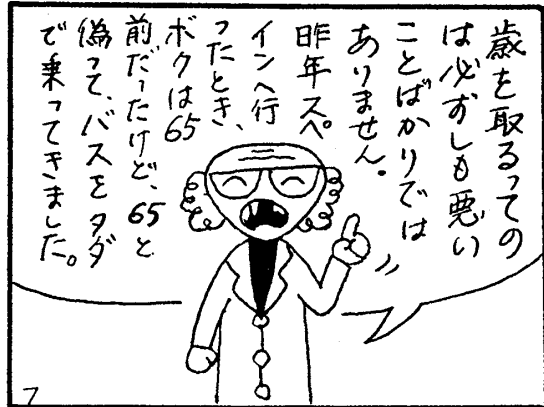 歳を取るっての
は必ずしも悪い
ことばかりでは
ありません。
昨年スペ
インへ行
ったとき、
ボクは65
前だったけど、65と
偽って、バスをタダ
で乗ってきました。
7